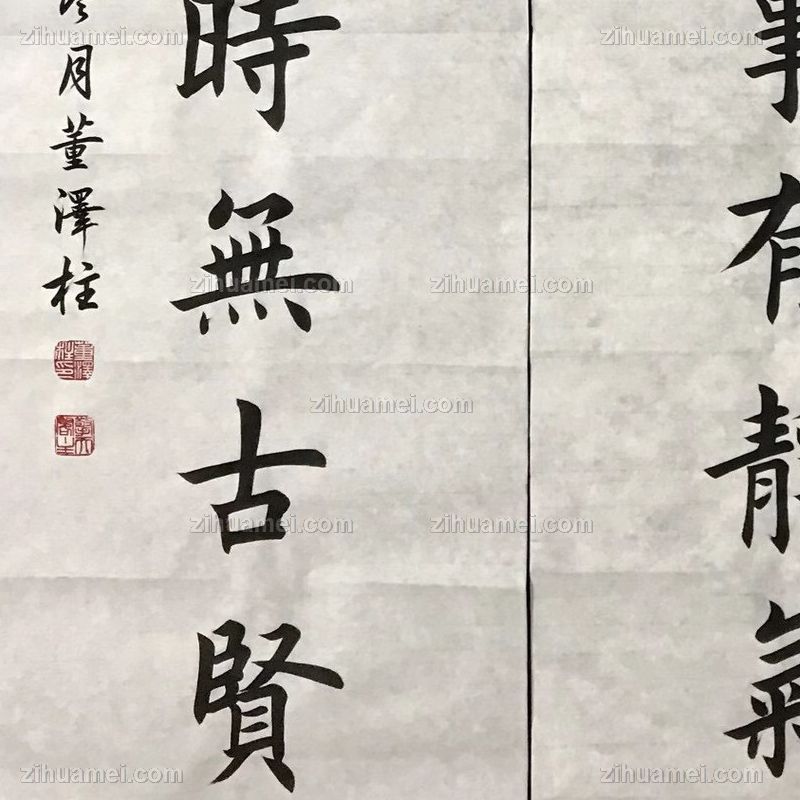 事有靜氣
時無古賢
月董澤柱
董澤柱印
zihuamei.com zihuamei.com zihuamei.com
zihuamei.com zihuamei.com
zihuamei.com
zihuamei.com zihuamei.com
zihuamei.com zihuamei.com